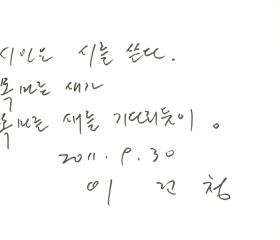 시인은 시를 쓴다.
목마른 새가
목마른 새를 기다리듯이.
2011. 9. 30
이건청